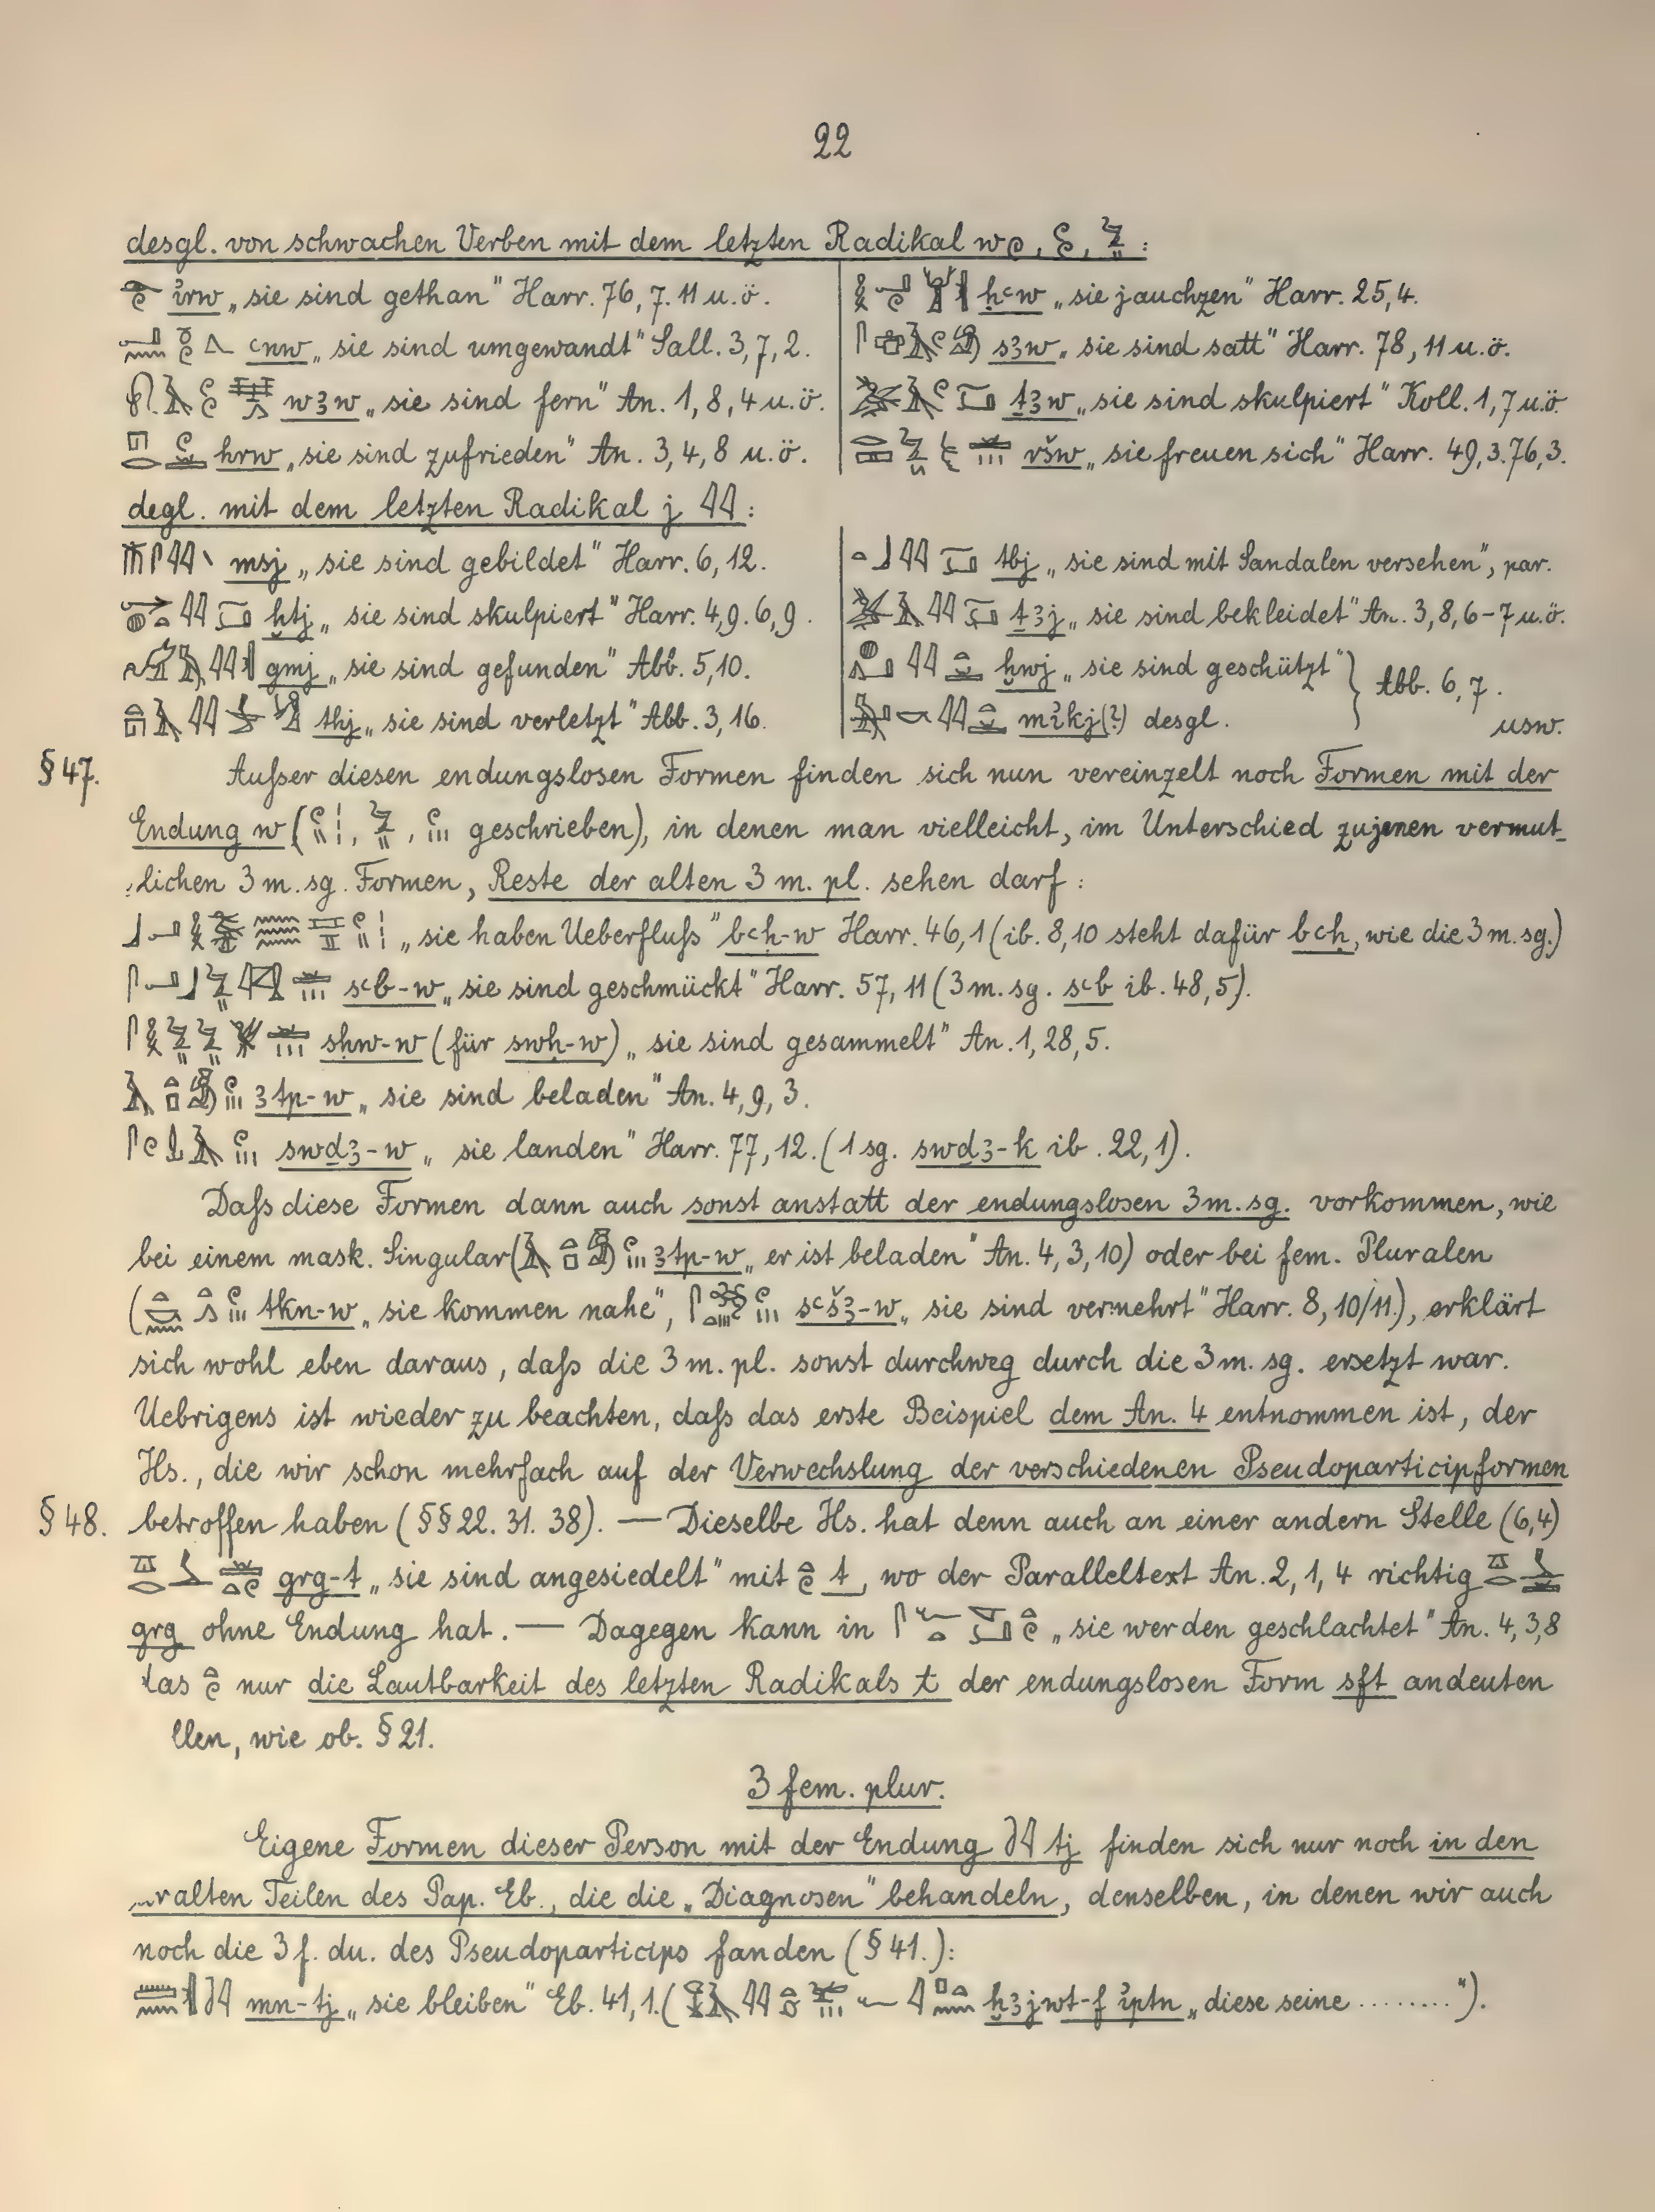 22
desgl. von schwachen Verben mit dem letzten Radikal w 𓏲, 𓅱, :
i҆rw „sie sind gethan" Harr. 76, 7. 11 u. ö.
ꜥnw „sie sind umgewandt" Sall. 3, 7, 2.
wꜣw „sie sind fern" An. 1, 8, 4 u. ö.
hrw „sie sind zufrieden" An. 3, 4, 8 u. ö.
ḥꜥw „sie jauchzen" Harr. 25, 4.
sꜣw „sie sind satt" Harr. 78, 11 u. ö.
ṯꜣw „sie sind skulpiert" Koll. 1, 7 u. ö.
ršw „sie freuen sich" Harr. 49, 3. 76, 3.
degl. mit dem letzten Radikal j 𓇋𓇋:
msj „sie sind gebildet" Harr. 6, 12.
ḫtj „sie sind skulpiert" Harr. 4, 9. 6, 9.
gmj „sie sind gefunden" Abb. 5, 10.
thj „sie sind verletzt" Abb. 3, 16.
tbj „sie sind mit Sandalen versehen", par.
ṯꜣj „sie sind bekleidet" An. 3, 8, 6-7 u. ö.
ḫwj „sie sind geschützt" } Abb. 6, 7.
mi҆kj(?) desgl. usw.
§ 47. Außer diesen endungslosen Formen finden sich nun vereinzelt noch Formen mit der
Endung w ( , , geschrieben), in denen man vielleicht, im Unterschied zu jenen vermut-
lichen 3 m. sg. Formen, Reste der alten 3 m. pl. sehen darf:
„sie haben Ueberfluß" bꜥḥ-w Harr. 46, 1 (ib. 8, 10 steht dafür bꜥḥ, wie die 3 m. sg.)
sꜥb-w „sie sind geschmückt" Harr. 57, 11 (3 m. sg. sꜥb ib. 48, 5).
sḥw-w (für swḥ-w) „sie sind gesammelt" An. 1, 28, 5.
ꜣtp-w „sie sind beladen" An. 4, 9, 3.
swḏꜣ-w „sie landen" Harr. 77, 12. (1 sg. swḏꜣ-k ib. 22, 1).
Daß diese Formen dann auch sonst anstatt der endungslosen 3 m. sg. vorkommen, wie
bei einem mask. Singular ( ꜣtp-w „er ist beladen" An. 4, 3, 10) oder bei fem. Pluralen
( tkn-w „sie kommen nahe", sꜥšꜣ-w „sie sind vermehrt" Harr. 8, 10/11.), erklärt
sich wohl eben daraus, daß die 3 m. pl. sonst durchweg durch die 3 m. sg. ersetzt war.
Uebrigens ist wieder zu beachten, daß das erste Beispiel dem An. 4 entnommen ist, der
Hs., die wir schon mehrfach auf der Verwechslung der verschiedenen Pseudoparticipformen
§ 48. betroffen haben (§§ 22. 31. 38). — Dieselbe Hs. hat denn auch an einer andern Stelle (6, 4)
grg-t „sie sind angesiedelt" mit t, wo der Paralleltext An. 2, 1, 4 richtig
grg ohne Endung hat. — Dagegen kann in „sie werden geschlachtet" An. 4, 3, 8
das nur die Lautbarkeit des letzten Radikals t der endungslosen Form sft andeuten
llen, wie ob. § 21.
3 fem. plur.
Eigene Formen dieser Person mit der Endung tj finden sich nur noch in den
ralten Teilen des Pap. Eb., die die „Diagnosen" behandeln, denselben, in denen wir auch
noch die 3 f. du. des Pseudoparticips fanden (§ 41.):
mn-tj „sie bleiben" Eb. 41, 1. ( ẖꜣjwt-f i҆ptn „diese seine ........").